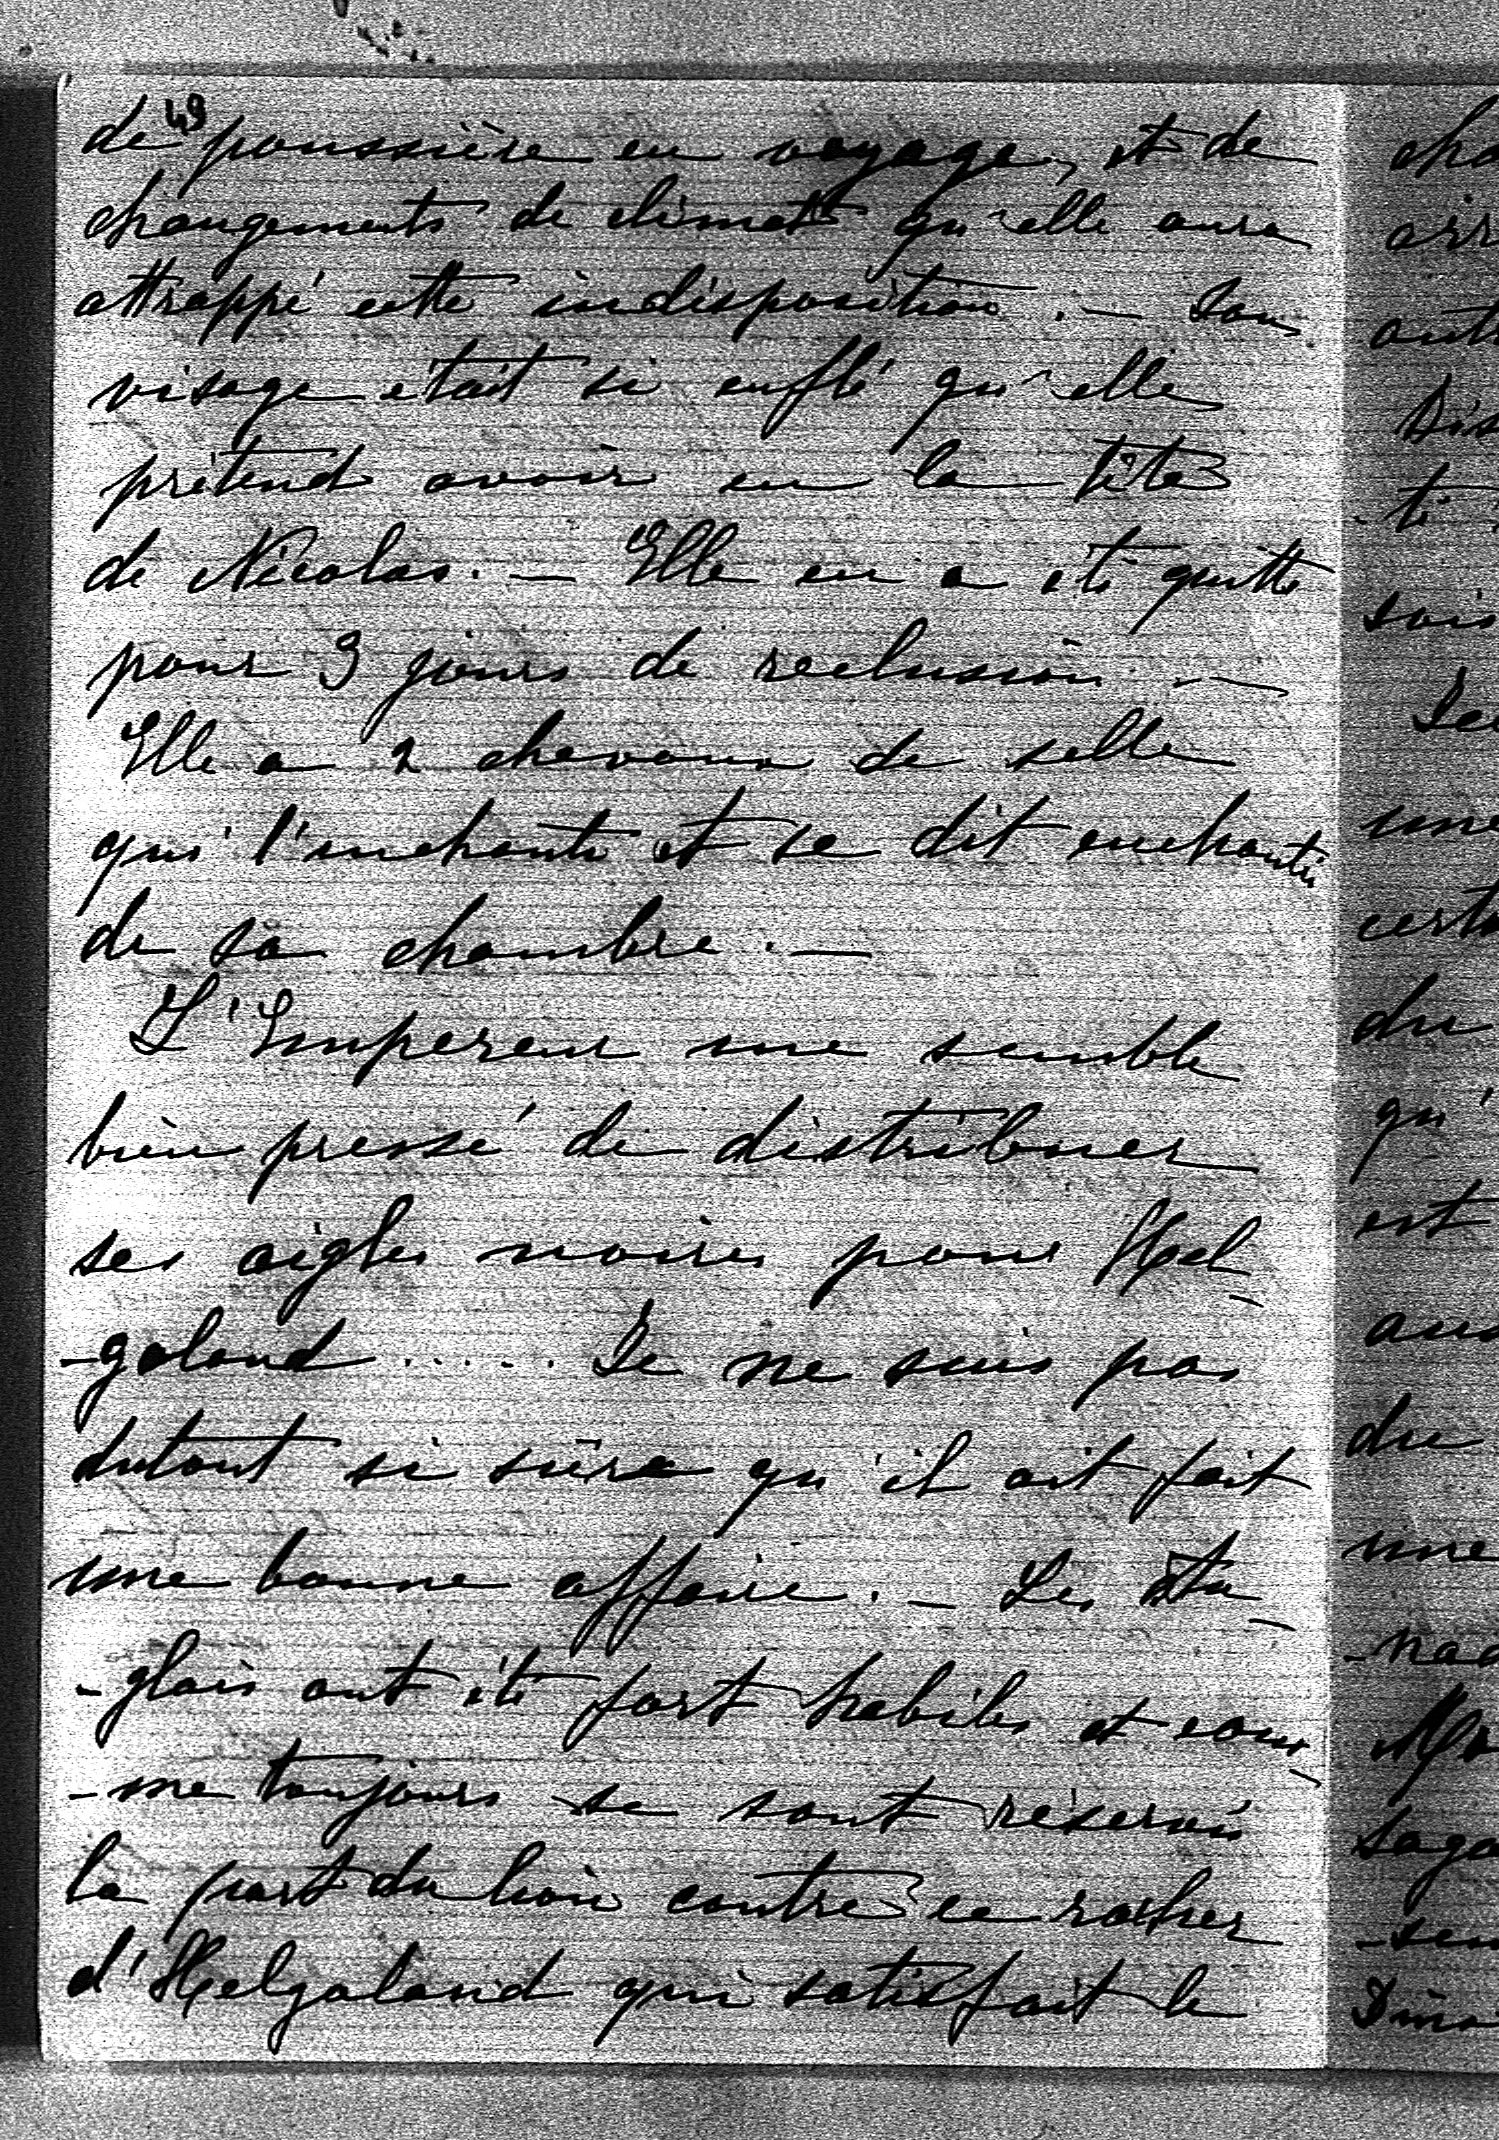 49
de poussière en voyage, et de
changements de climats qu'elle aura
attrappé cette indisposition. — Son
visage était si enflé qu'elle
prétend avoir eu la tête
de Nicolas. — Elle en a été quitte
pour 3 jours de reclusion —
Elle a 2 chevaux de selle
qui l'enchante et se dit enchantée
de sa chambre. —
L'Empereur me semble
bien pressé de distribuer
ses aigles noires pour Hel-
-goland ..... Je ne suis pas
dutout si sûre qu'il ait fait
une bonne affaire. — Les An-
-glais ont été fort habiles et com-
-me toujours se sont réservés
la part du lion contre ce rocher
d'Helgoland qui satisfait le